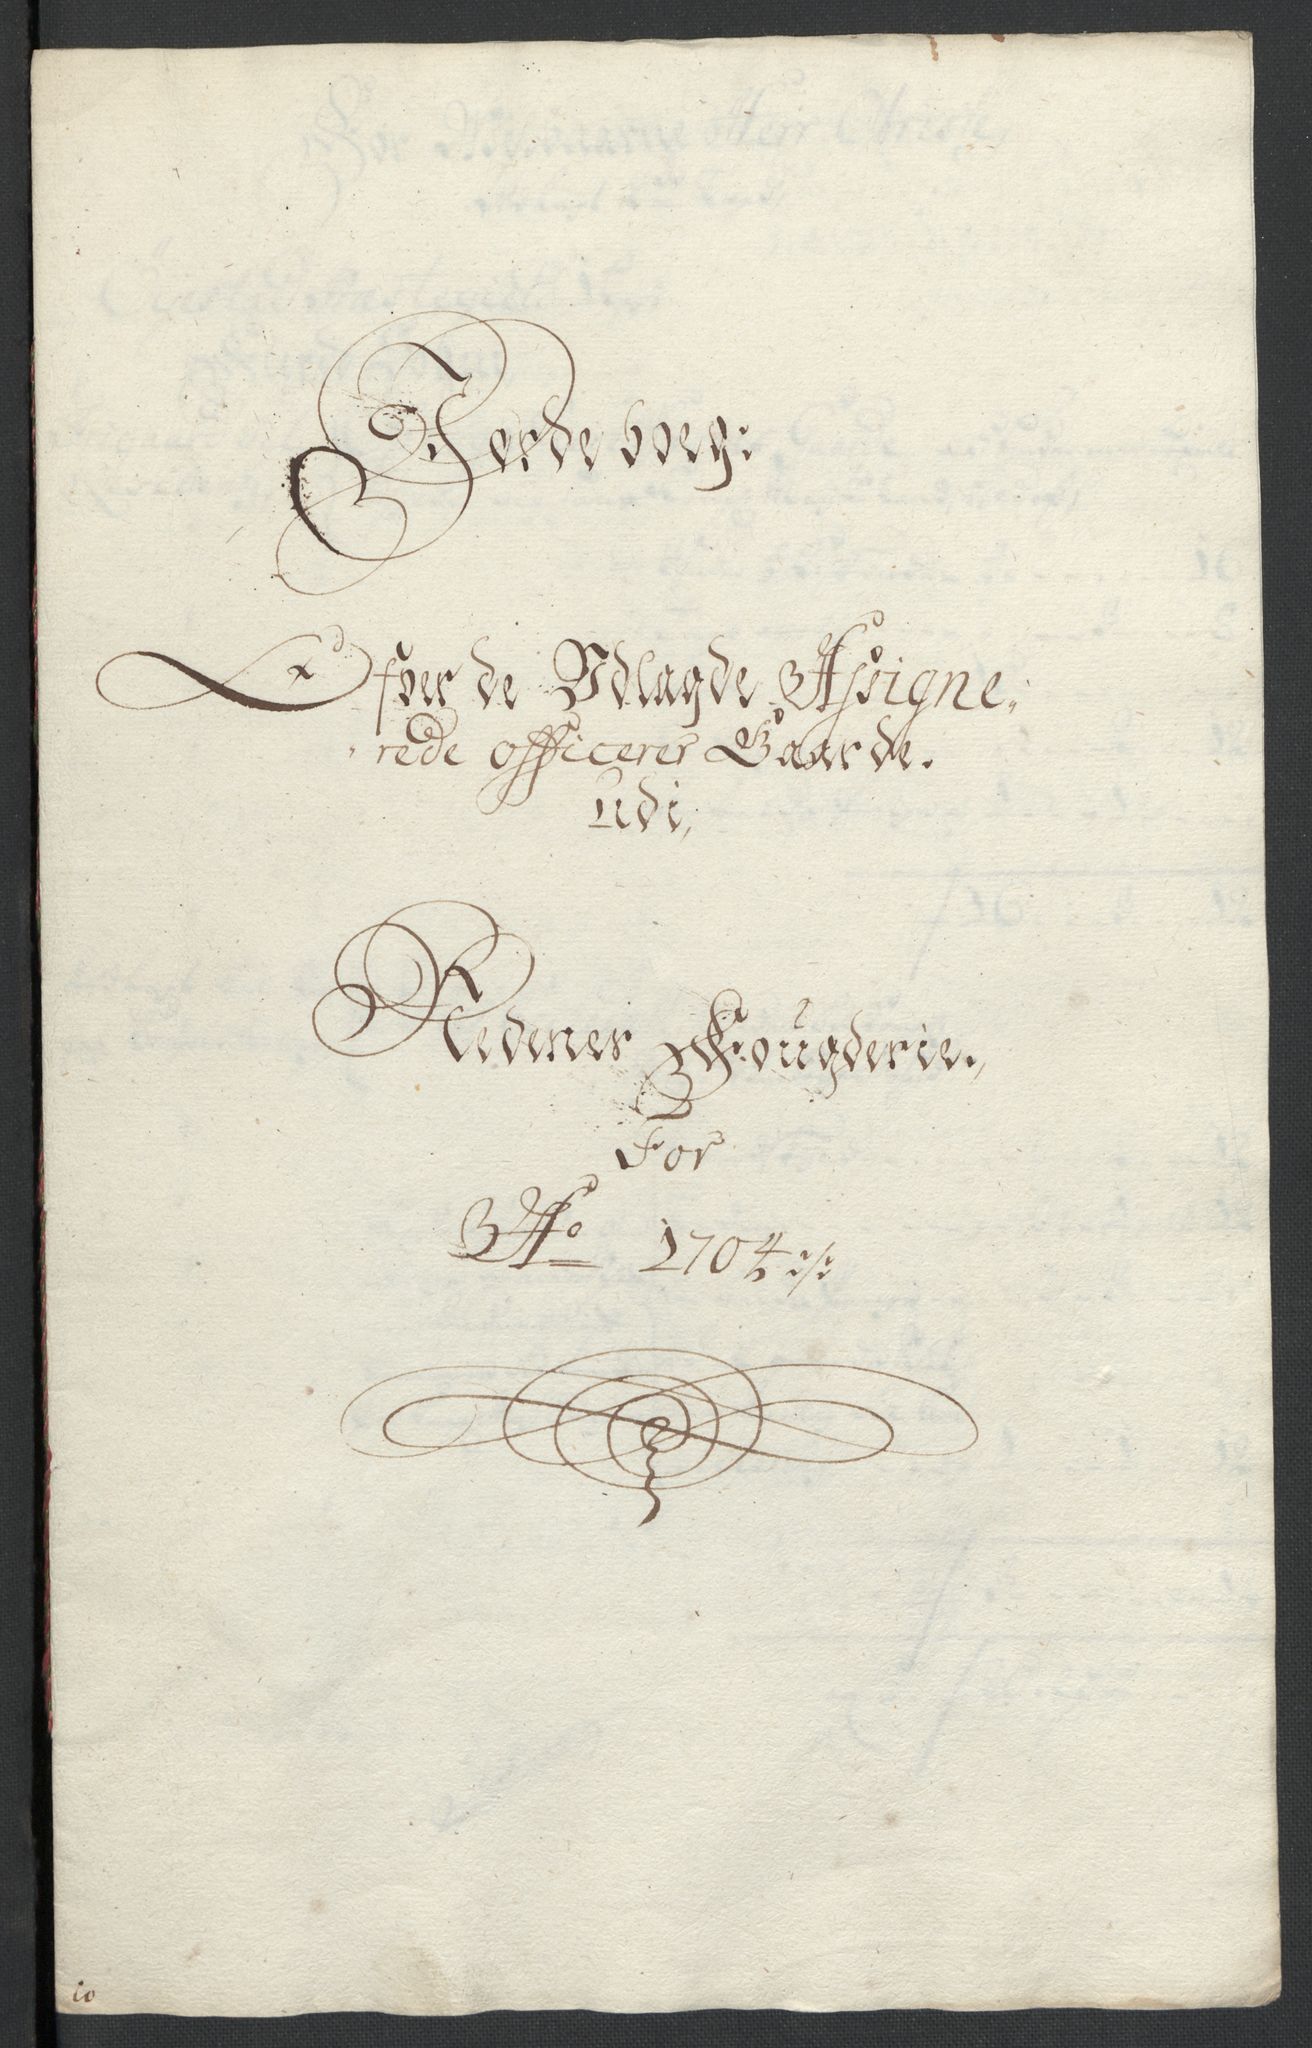 Jordeboeg:
Ofver de Udlagde Assigne,,
,,rede officerer Gaarde.
udi,
Nedenes Fougderie.,
For
Ao 1704 ./.
10